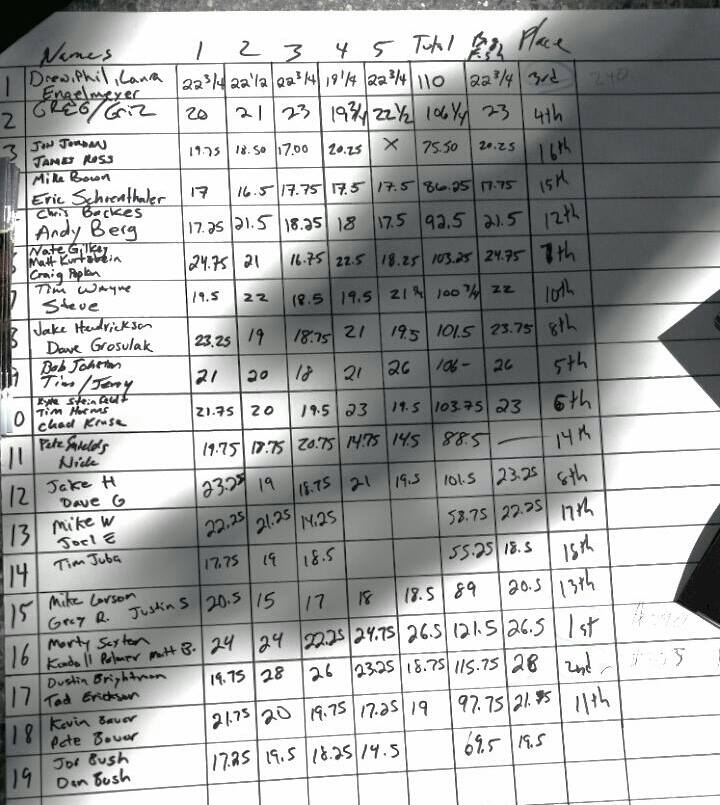 Names 1 2 3 4 5 Total Big Fish Place
1 Drew, Phil, Lana Engelmeyer 22 3/4 22 1/2 22 3/4 19 1/4 22 3/4 110 22 3/4 3rd
2 GREG/Griz 20 21 23 19 3/4 22 1/2 106 1/4 23 4th
3 JON JORDAN JAMES ROSS 19.75 18.50 17.00 20.25 X 75.50 20.25 16th
Mike Bown Eric Schrenthaler 17 16.5 17.75 17.5 17.5 86.25 17.75 15th
Chris Backes Andy Berg 17.25 21.5 18.25 18 17.5 92.5 21.5 12th
Nate Gilkey Matt Kurtzbein Craig Popken 24.75 21 16.75 22.5 18.25 103.25 24.75 7th
Tim Wayne Steve 19.5 22 18.5 19.5 21 100 3/4 22 10th
8 Jake Hendrickson Dave Grosulak 23.25 19 18.75 21 19.5 101.5 23.75 8th
9 Bob Johnson Tim/Jerry 21 20 18 21 26 106- 26 5th
0 Kyle Tim Harms Chad Kruse 21.75 20 19.5 23 19.5 103.75 23 6th
11 Pete Nick 19.75 18.75 20.75 14.75 14.5 88.5 — 14th
12 Jake H Dave G 23.25 19 18.75 21 19.5 101.5 23.25 8th
13 Mike W Joel E 22.25 21.25 14.25 58.75 22.25 17th
14 Tim Juba 17.75 19 18.5 55.25 18.5 18th
15 Mike Larson Greg R. Justin S 20.5 15 17 18 18.5 89 20.5 13th
16 Morty Sexton Kendall Palmer Matt B. 24 24 22.25 24.75 26.5 121.5 26.5 1st
17 Dustin Brightman Tad Erickson 19.75 28 26 23.25 18.75 115.75 28 2nd
18 Kevin Bauer Pete Bauer 21.75 20 19.75 17.25 19 97.75 21.75 11th
19 Joe Bush Dan Bush 17.25 19.5 18.25 14.5 69.5 19.5